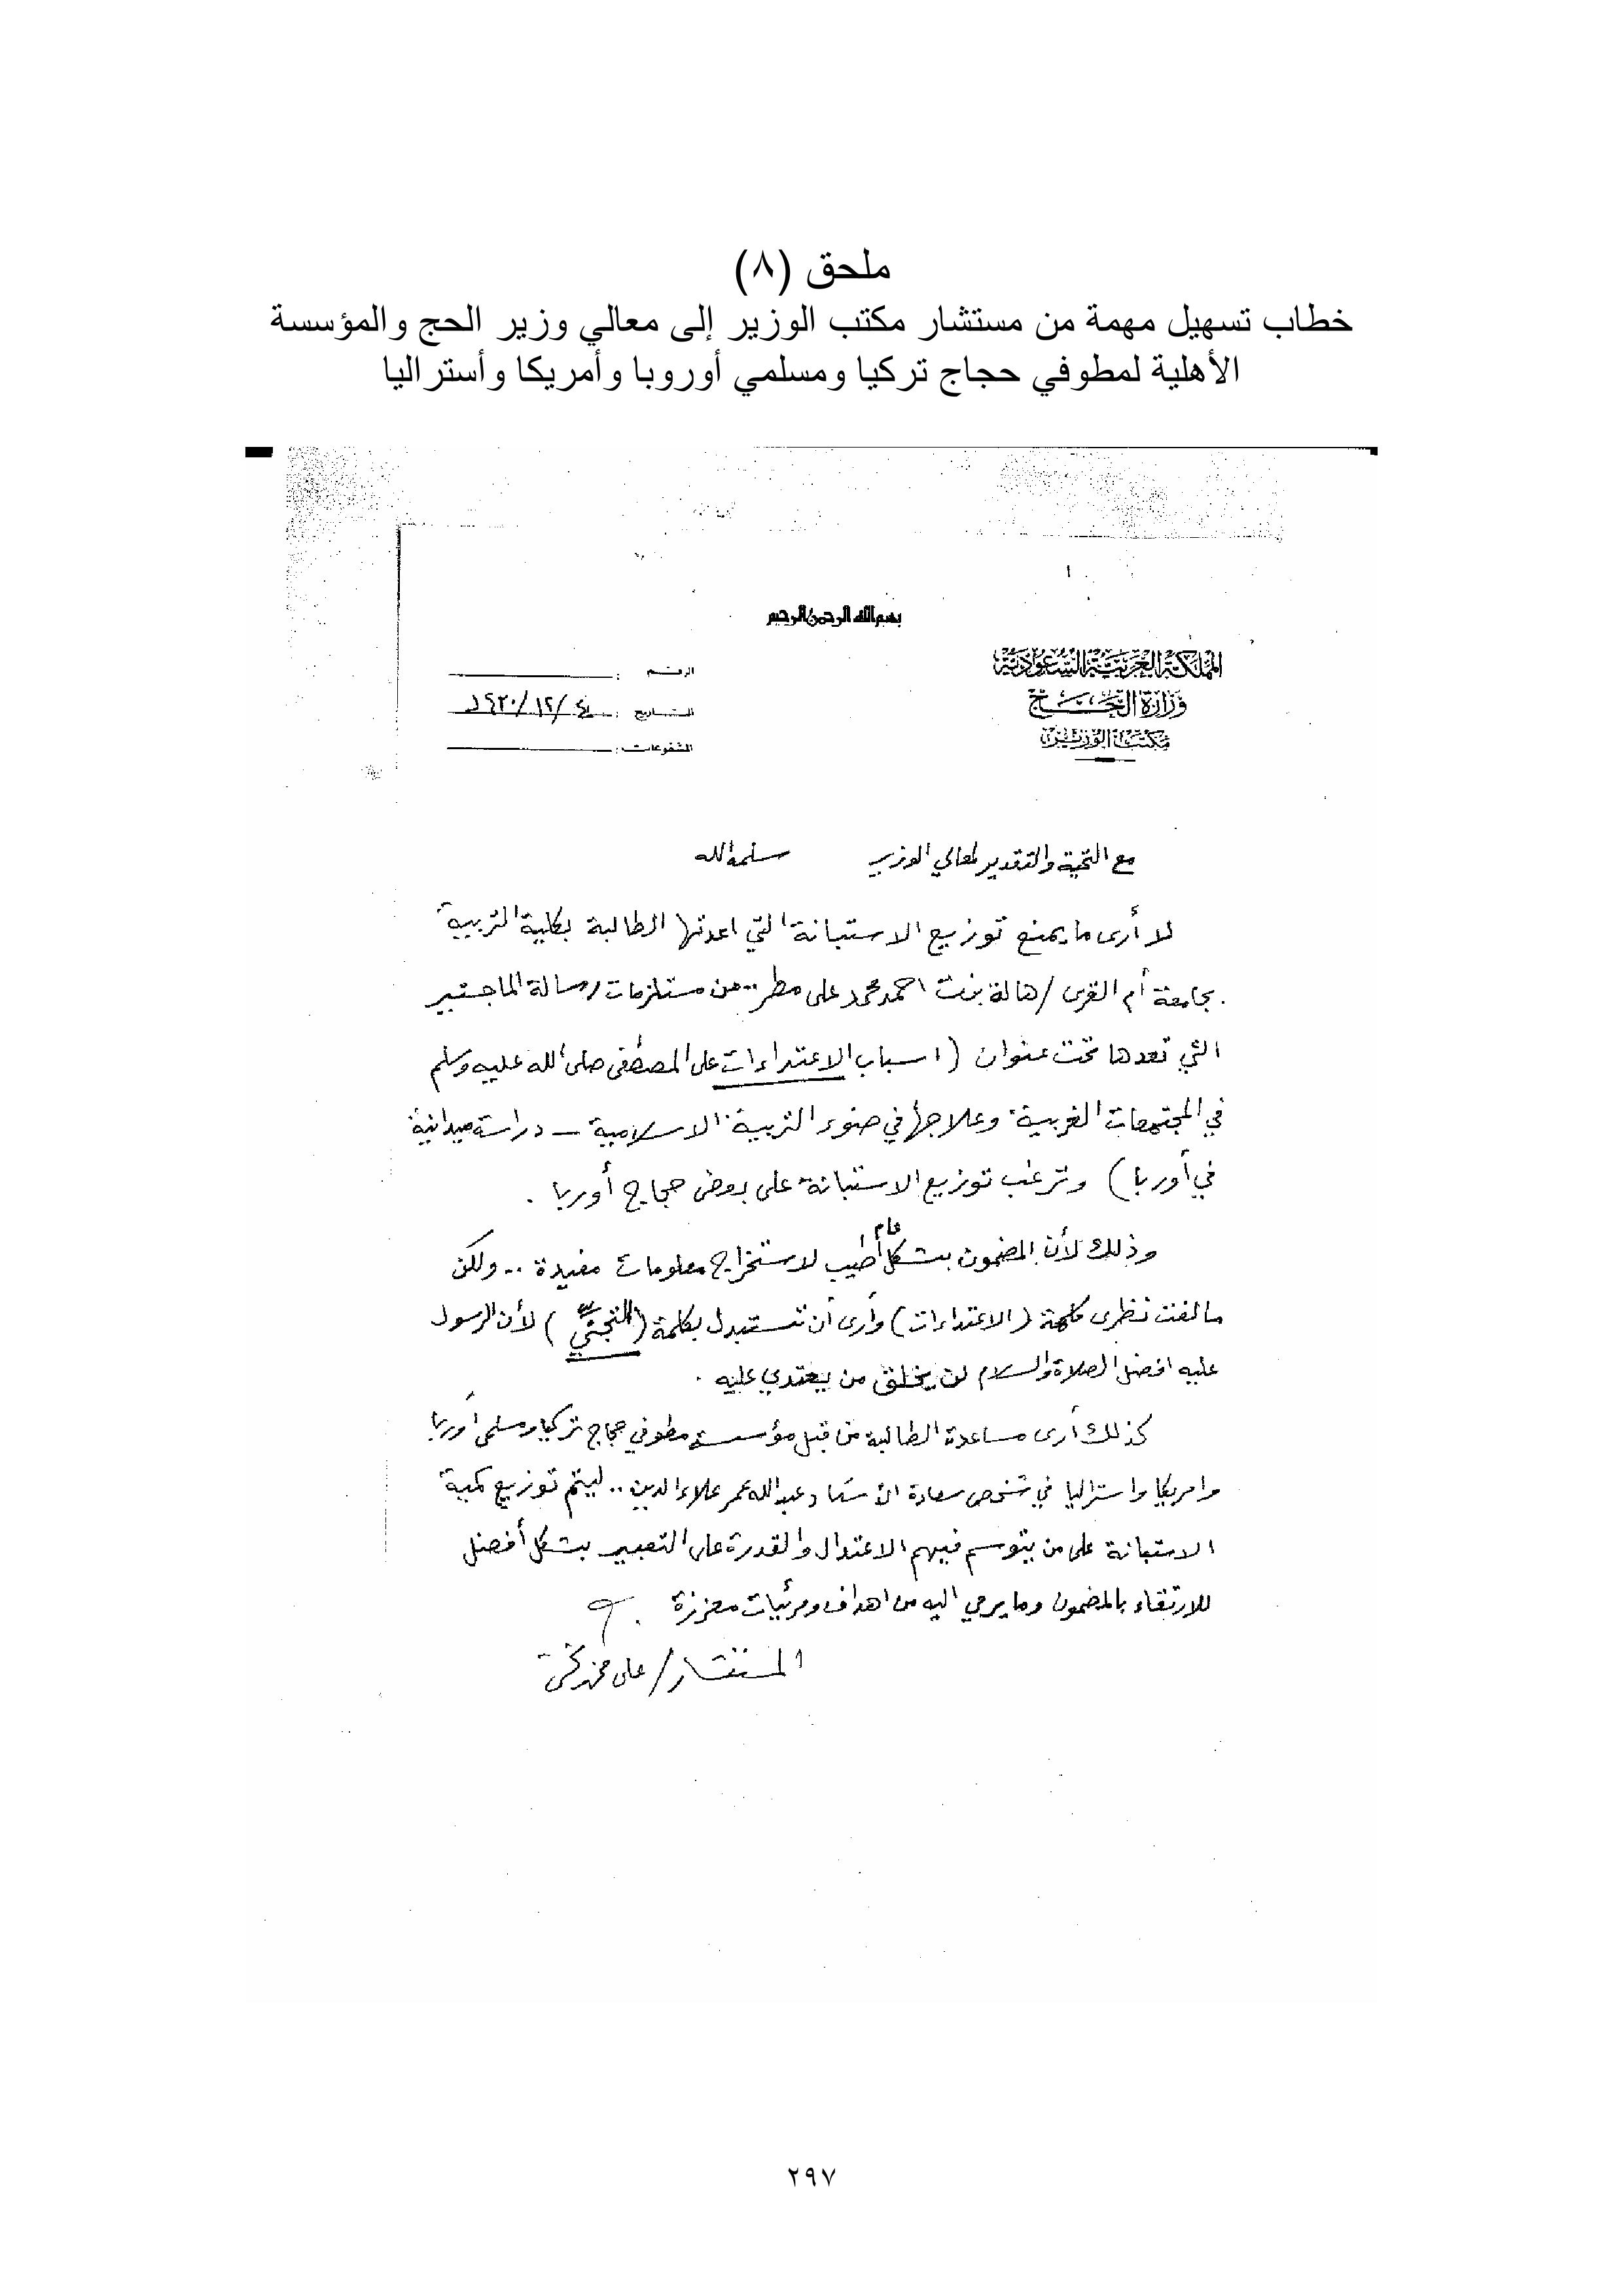 ملحق (٨)
خطاب تسهيل مهمة من مستشار مكتب الوزير إلى معالي وزير الحج والمؤسسة
الأهلية لمطوفي حجاج تركيا ومسلمي أوروبا وأمريكا وأستراليا
بسم الله الرحمن الرحيم
المملكة العربية السعودية
وزارة الحج
مكتب الوزير
الرقم :
التاريخ :
المشفوعات :
مع التحية والتقدير لمعالي الوزير سلمه الله
لا أرى ما يمنع توزيع الاستبانة التي اعدتها الطالبة بكلية التربية
بجامعة أم القرى / هالة بنت احمد محمد على مطر .. من مستلزمات رسالة الماجستير
التي تعدها تحت عنوان ( اسباب الاعتداءات على المصطفى صلى الله عليه وسلم
في المجتمعات الغربية وعلاجها في ضوء التربية الاسلامية – دراسة ميدانية
في أوربا ) وترغب توزيع الاستبانة على بعض حجاج أوربا .
وذلك لأن المضمون بشكل عام أطيب لاستخراج معلومات مفيدة .. ولكن
ما لفت نظرى كلمة ( الاعتداءات ) وأرى أن تستبدل بكلمة ( التجنّي ) لأن الرسول
عليه افضل الصلاة والسلام لن يخلق من يعتدي عليه .
كذلك أرى مساعدة الطالبة من قبل مؤسسة مطوفي حجاج تركيا ومسلمى أوربا
وامريكا واستراليا في شخص سعادة الأستاذ عبدالله عمر علاء الدين .. ليتم توزيع كمية
الاستبانة على من يتوسم فيهم الاعتدال والقدرة على التعبير بشكل أفضل
للارتقاء بالمضمون وما يرمي اليه من اهداف ومرئيات معززة .
المستشار / على محمد
٢٩٧